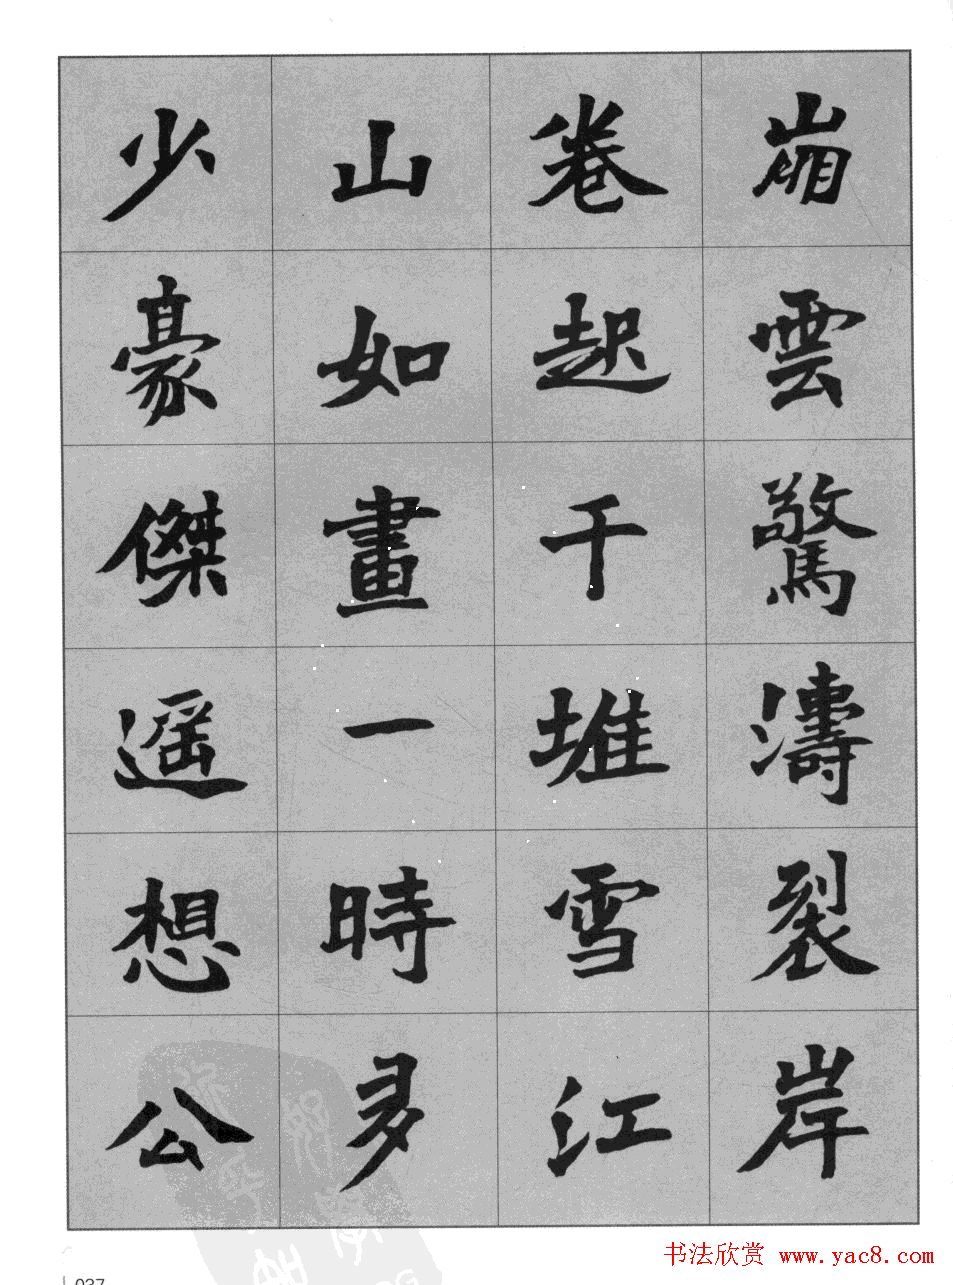 崩雲驚濤裂岸
卷起千堆雪江
山如畫一時多
少豪傑遥想公
书法欣赏 www.yac8.com
037